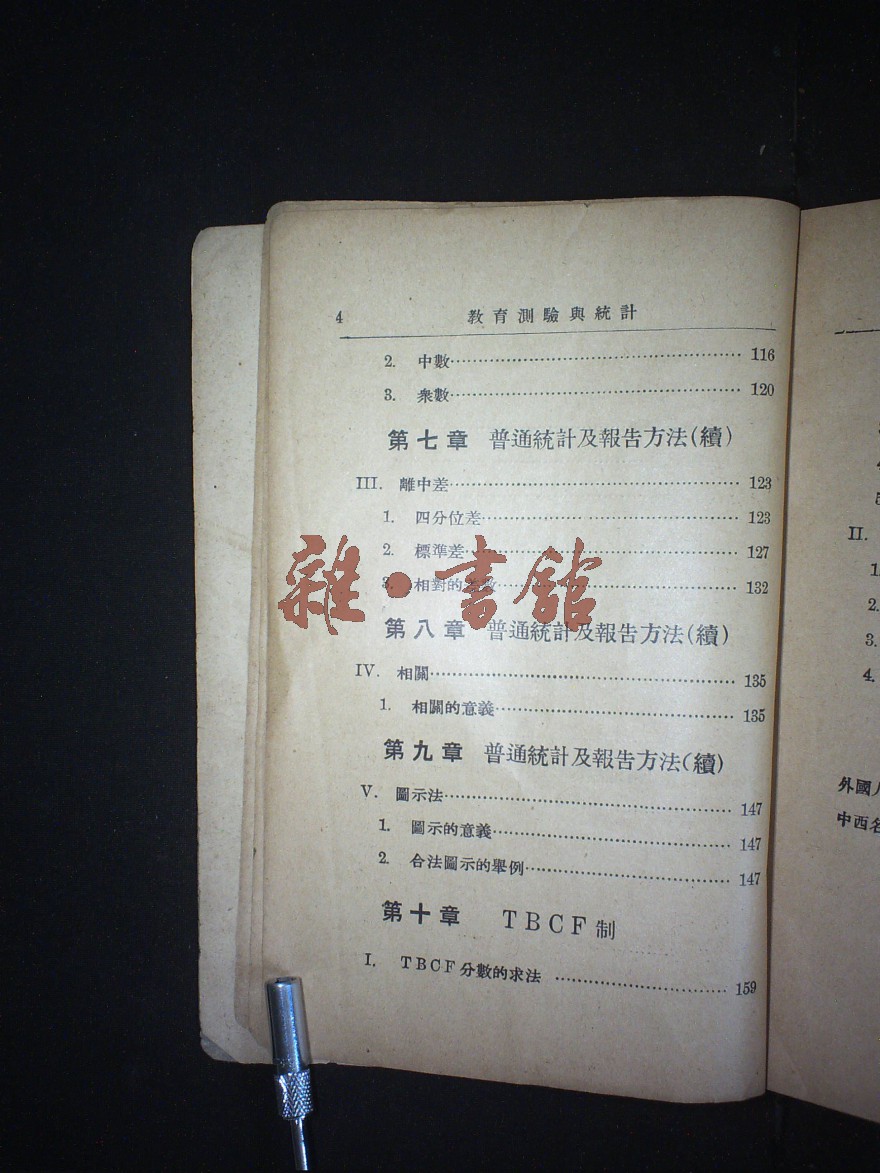 4 教育測驗與統計
2. 中數 116
3. 衆數 120
第七章 普通統計及報告方法(續)
III. 離中差 123
1. 四分位差 123
2. 標準差 127
3. 相對的差數 132
雜·書舘
第八章 普通統計及報告方法(續)
IV. 相關 135
1. 相關的意義 135
第九章 普通統計及報告方法(續)
V. 圖示法 147
1. 圖示的意義 147
2. 合法圖示的舉例 147
第十章 TBCF制
I. TBCF分數的求法 159
II.
1.
2.
3.
4.
外國
中西名